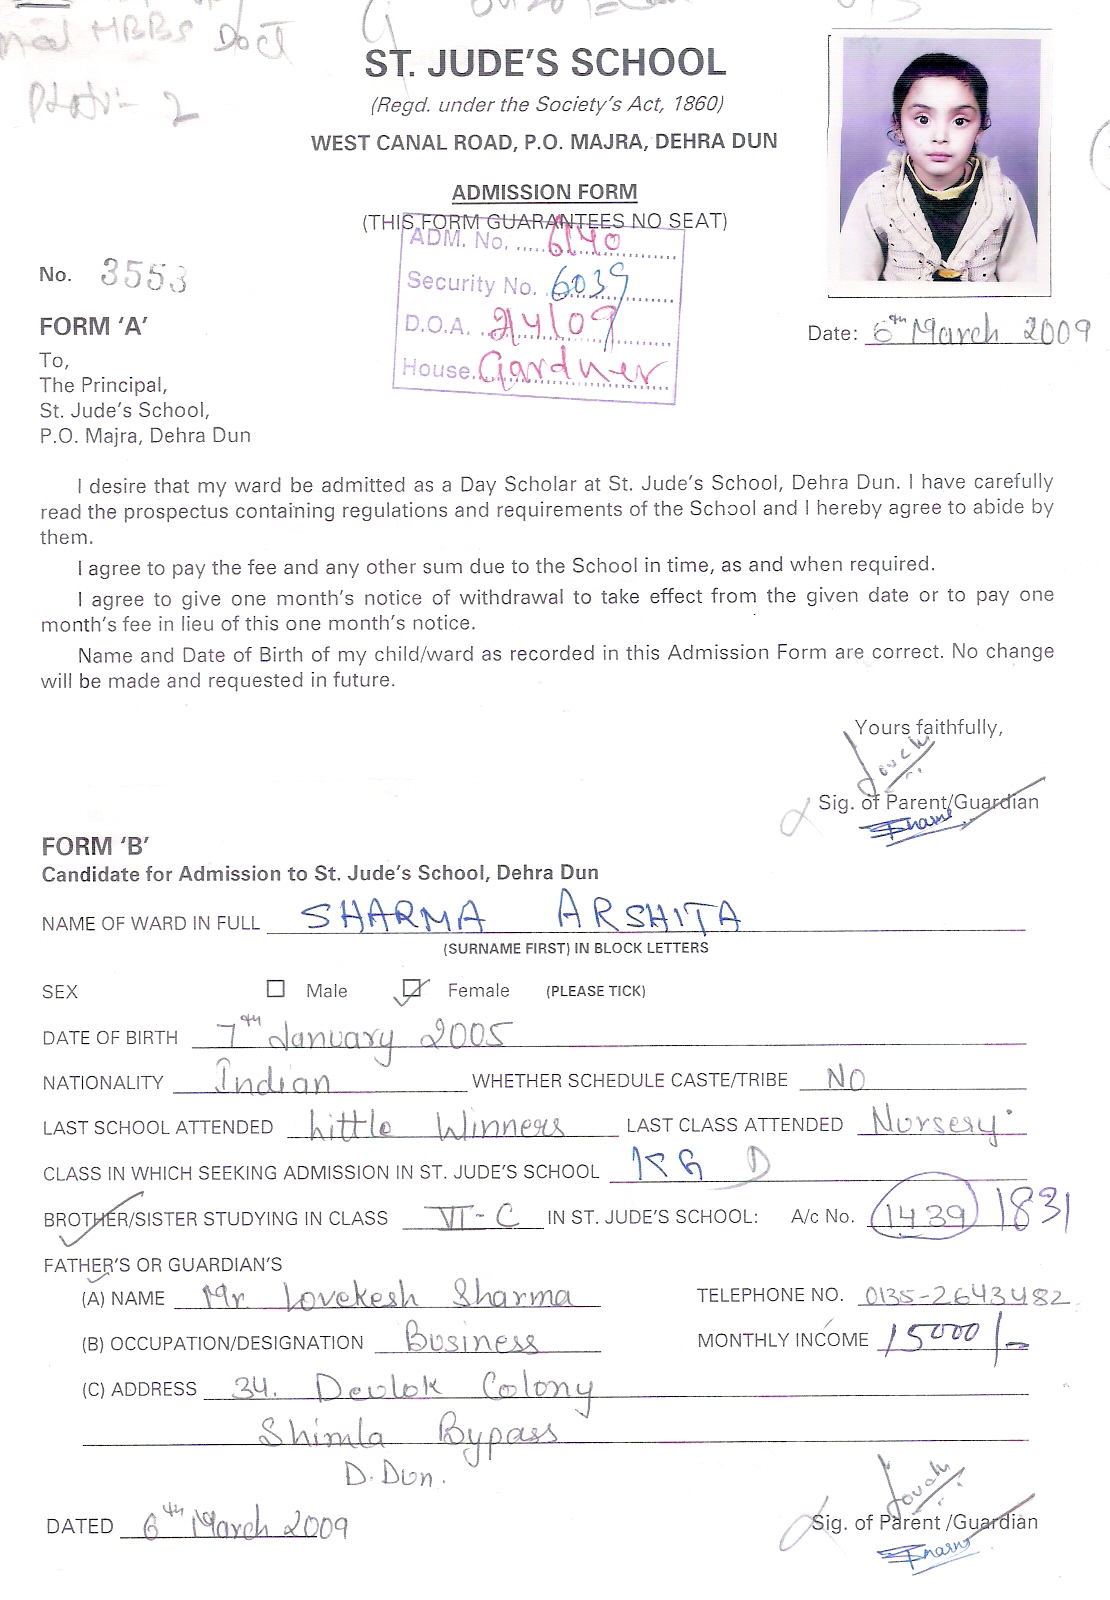 MBBS Doct
ST. JUDE'S SCHOOL
(Regd. under the Society's Act, 1860)
WEST CANAL ROAD, P.O. MAJRA, DEHRA DUN
ADMISSION FORM
(THIS FORM GUARANTEES NO SEAT)
ADM. No. 6140
Security No. 6039
D.O.A. 2/4/09
House. Gardner
No. 3553
Date: 6th March 2009
FORM 'A'
To,
The Principal,
St. Jude's School,
P.O. Majra, Dehra Dun
I desire that my ward be admitted as a Day Scholar at St. Jude's School, Dehra Dun. I have carefully
read the prospectus containing regulations and requirements of the School and I hereby agree to abide by
them.
I agree to pay the fee and any other sum due to the School in time, as and when required.
I agree to give one month's notice of withdrawal to take effect from the given date or to pay one
month's fee in lieu of this one month's notice.
Name and Date of Birth of my child/ward as recorded in this Admission Form are correct. No change
will be made and requested in future.
Yours faithfully,
Sig. of Parent/Guardian
FORM 'B'
Candidate for Admission to St. Jude's School, Dehra Dun
NAME OF WARD IN FULL SHARMA ARSHITA
(SURNAME FIRST) IN BLOCK LETTERS
SEX Male Female (PLEASE TICK)
DATE OF BIRTH 7th January 2005
NATIONALITY Indian WHETHER SCHEDULE CASTE/TRIBE NO
LAST SCHOOL ATTENDED Little Winners LAST CLASS ATTENDED Nursery
CLASS IN WHICH SEEKING ADMISSION IN ST. JUDE'S SCHOOL KG D
BROTHER/SISTER STUDYING IN CLASS VI-C IN ST. JUDE'S SCHOOL: A/c No. 1439 1831
FATHER'S OR GUARDIAN'S
(A) NAME Mr Lovekesh Sharma TELEPHONE NO. 0135-2643482
(B) OCCUPATION/DESIGNATION Business MONTHLY INCOME 15000/-
(C) ADDRESS 34. Devlok Colony
Shimla Bypass
D. Dun.
DATED 6th March 2009
Sig. of Parent /Guardian